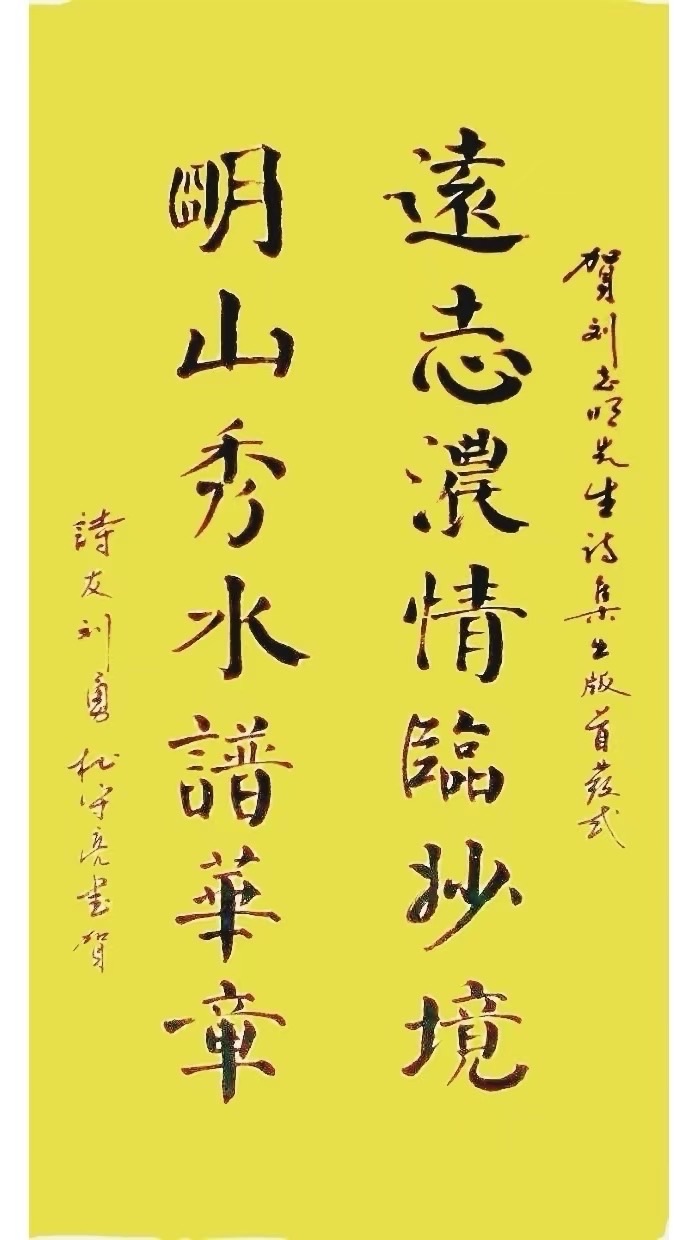 贺刘志明先生诗集出版首發式
遠志濃情臨妙境
明山秀水譜華章
詩友刘勇杜守亮书贺